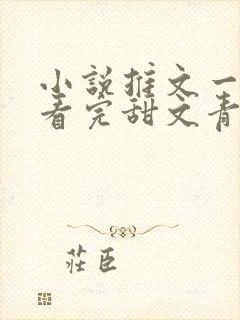 小説推文一
看完甜文青
莊臣